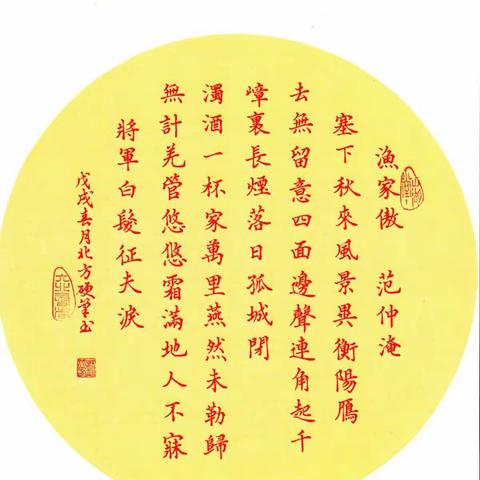 漁家傲 范仲淹
塞下秋來風景異衡陽鴈
去無留意四面邊聲連角起千
嶂裏長煙落日孤城閉
濁酒一杯家萬里燕然未勒歸
無計羌管悠悠霜滿地人不寐
將軍白髮征夫淚
戊戌春月北方硬筆书